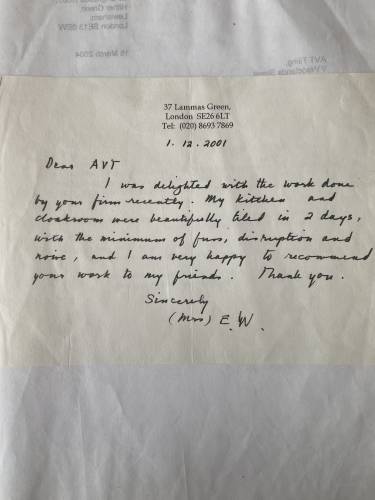 Hither Green,
Lewisham,
London SE13 6EW
15 March 2004
AVT Tiling,
37 Lammas Green,
London SE26 6LT
Tel: (020) 8693 7869
1.12.2001
Dear AVT
I was delighted with the work done
by your firm recently. My kitchen and
cloakroom were beautifully tiled in 2 days,
with the minimum of fuss, disruption and
noise, and I am very happy to recommend
your work to my friends. Thank you.
Sincerely
(Mrs) E. W.